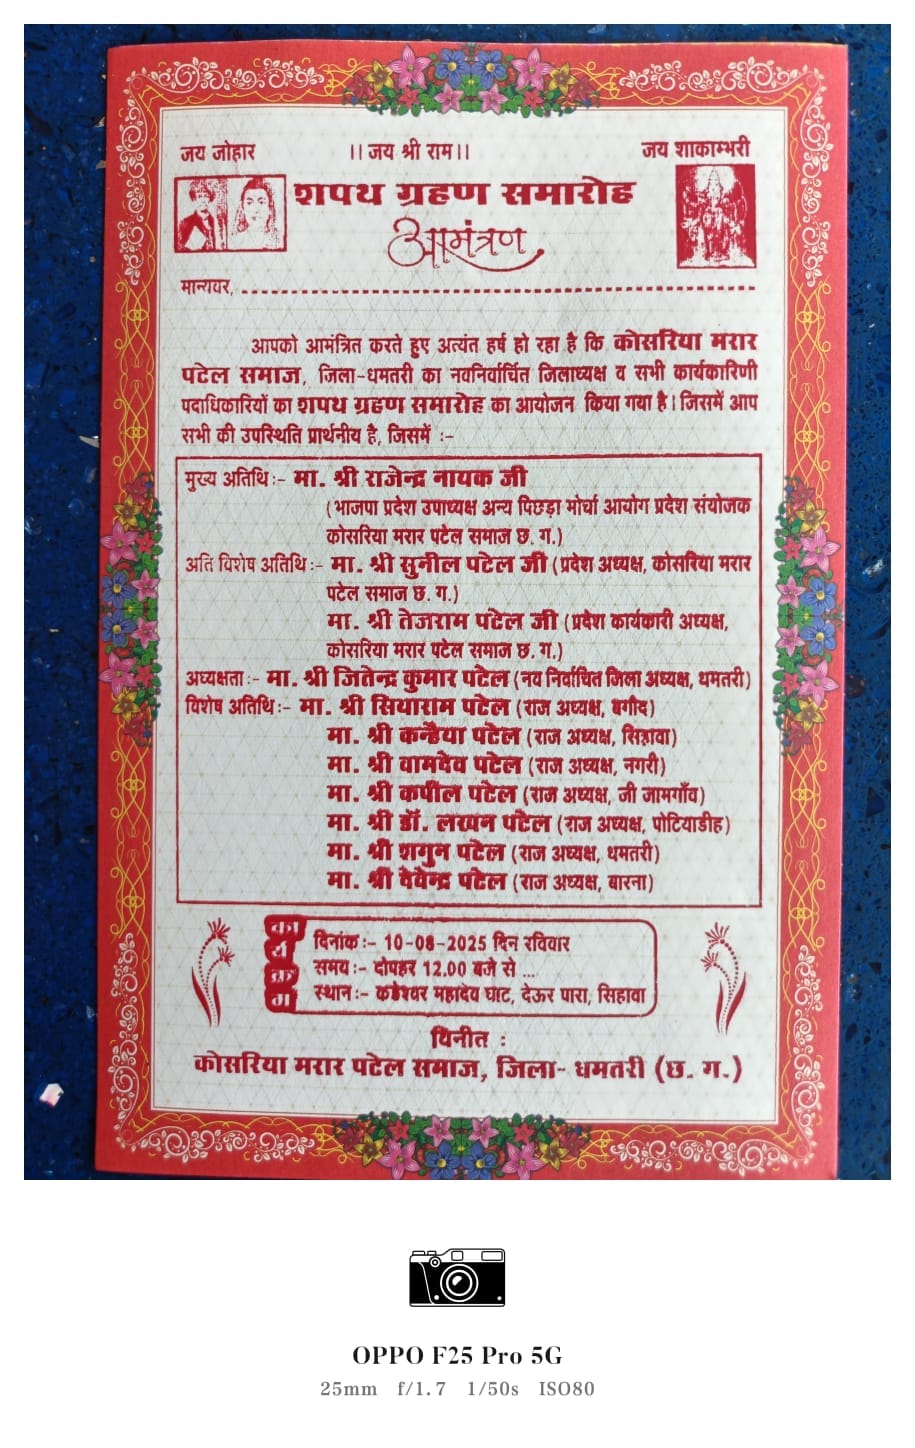 जय जोहार ।। जय श्री राम।। जय शाकाम्भरी
शपथ ग्रहण समारोह
आमंत्रण
मान्यवर,
आपको आमंत्रित करते हुए अत्यंत हर्ष हो रहा है कि कोसरिया मरार
पटेल समाज, जिला-धमतरी का नवनिर्वाचित जिलाध्यक्ष व सभी कार्यकारिणी
पदाधिकारियों का शपथ ग्रहण समारोह का आयोजन किया गया है। जिसमें आप
सभी की उपस्थिति प्रार्थनीय है, जिसमें :-
मुख्य अतिथि:- मा. श्री राजेन्द्र नायक जी
(भाजपा प्रदेश उपाध्यक्ष अन्य पिछड़ा मोर्चा आयोग प्रदेश संयोजक
कोसरिया मरार पटेल समाज छ. ग.)
अति विशेष अतिथि:- मा. श्री सुनील पटेल जी (प्रदेश अध्यक्ष, कोसरिया मरार
पटेल समाज छ. ग.)
मा. श्री तेजराम पटेल जी (प्रदेश कार्यकारी अध्यक्ष,
कोसरिया मरार पटेल समाज छ. ग.)
अध्यक्षता:- मा. श्री जितेन्द्र कुमार पटेल (नव निर्वाचित जिला अध्यक्ष, धमतरी)
विशेष अतिथि:- मा. श्री सियाराम पटेल (राज अध्यक्ष, बगौद)
मा. श्री कन्हैया पटेल (राज अध्यक्ष, सिहावा)
मा. श्री वामदेव पटेल (राज अध्यक्ष, नगरी)
मा. श्री कपील पटेल (राज अध्यक्ष, जी जामगाँव)
मा. श्री डॉ. लखन पटेल (राज अध्यक्ष, पोटियाडीह)
मा. श्री शगुन पटेल (राज अध्यक्ष, धमतरी)
मा. श्री देवेन्द्र पटेल (राज अध्यक्ष, बारना)
दिनांक:- 10-08-2025 दिन रविवार
समय:- दोपहर 12.00 बजे से ...
स्थान:- कर्णेश्वर महादेव घाट, देऊर पारा, सिहावा
विनीत :
कोसरिया मरार पटेल समाज, जिला- धमतरी (छ. ग.)
OPPO F25 Pro 5G
25mm f/1.7 1/50s ISO80